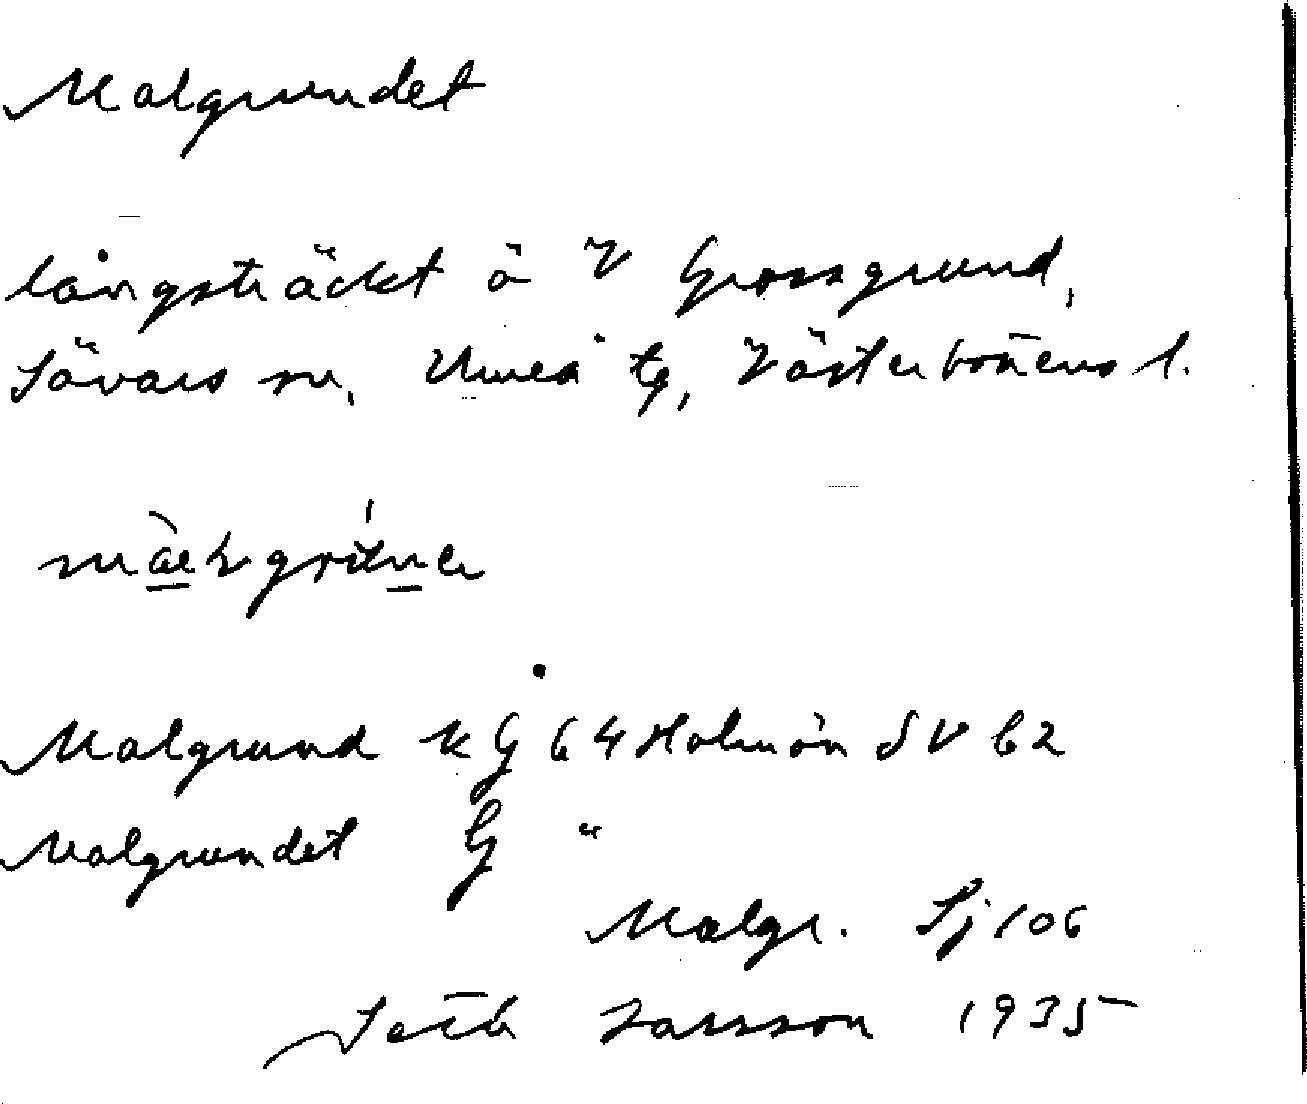 Malgrundet
långsträckt ö V Grossgrund,
Sävars sn, Umeå tg, Västerbottens l.
Malgrund KG 64 Holmön SV 62
Malgrundet G "
Malgr. Sj 106
Seth Larsson 1935